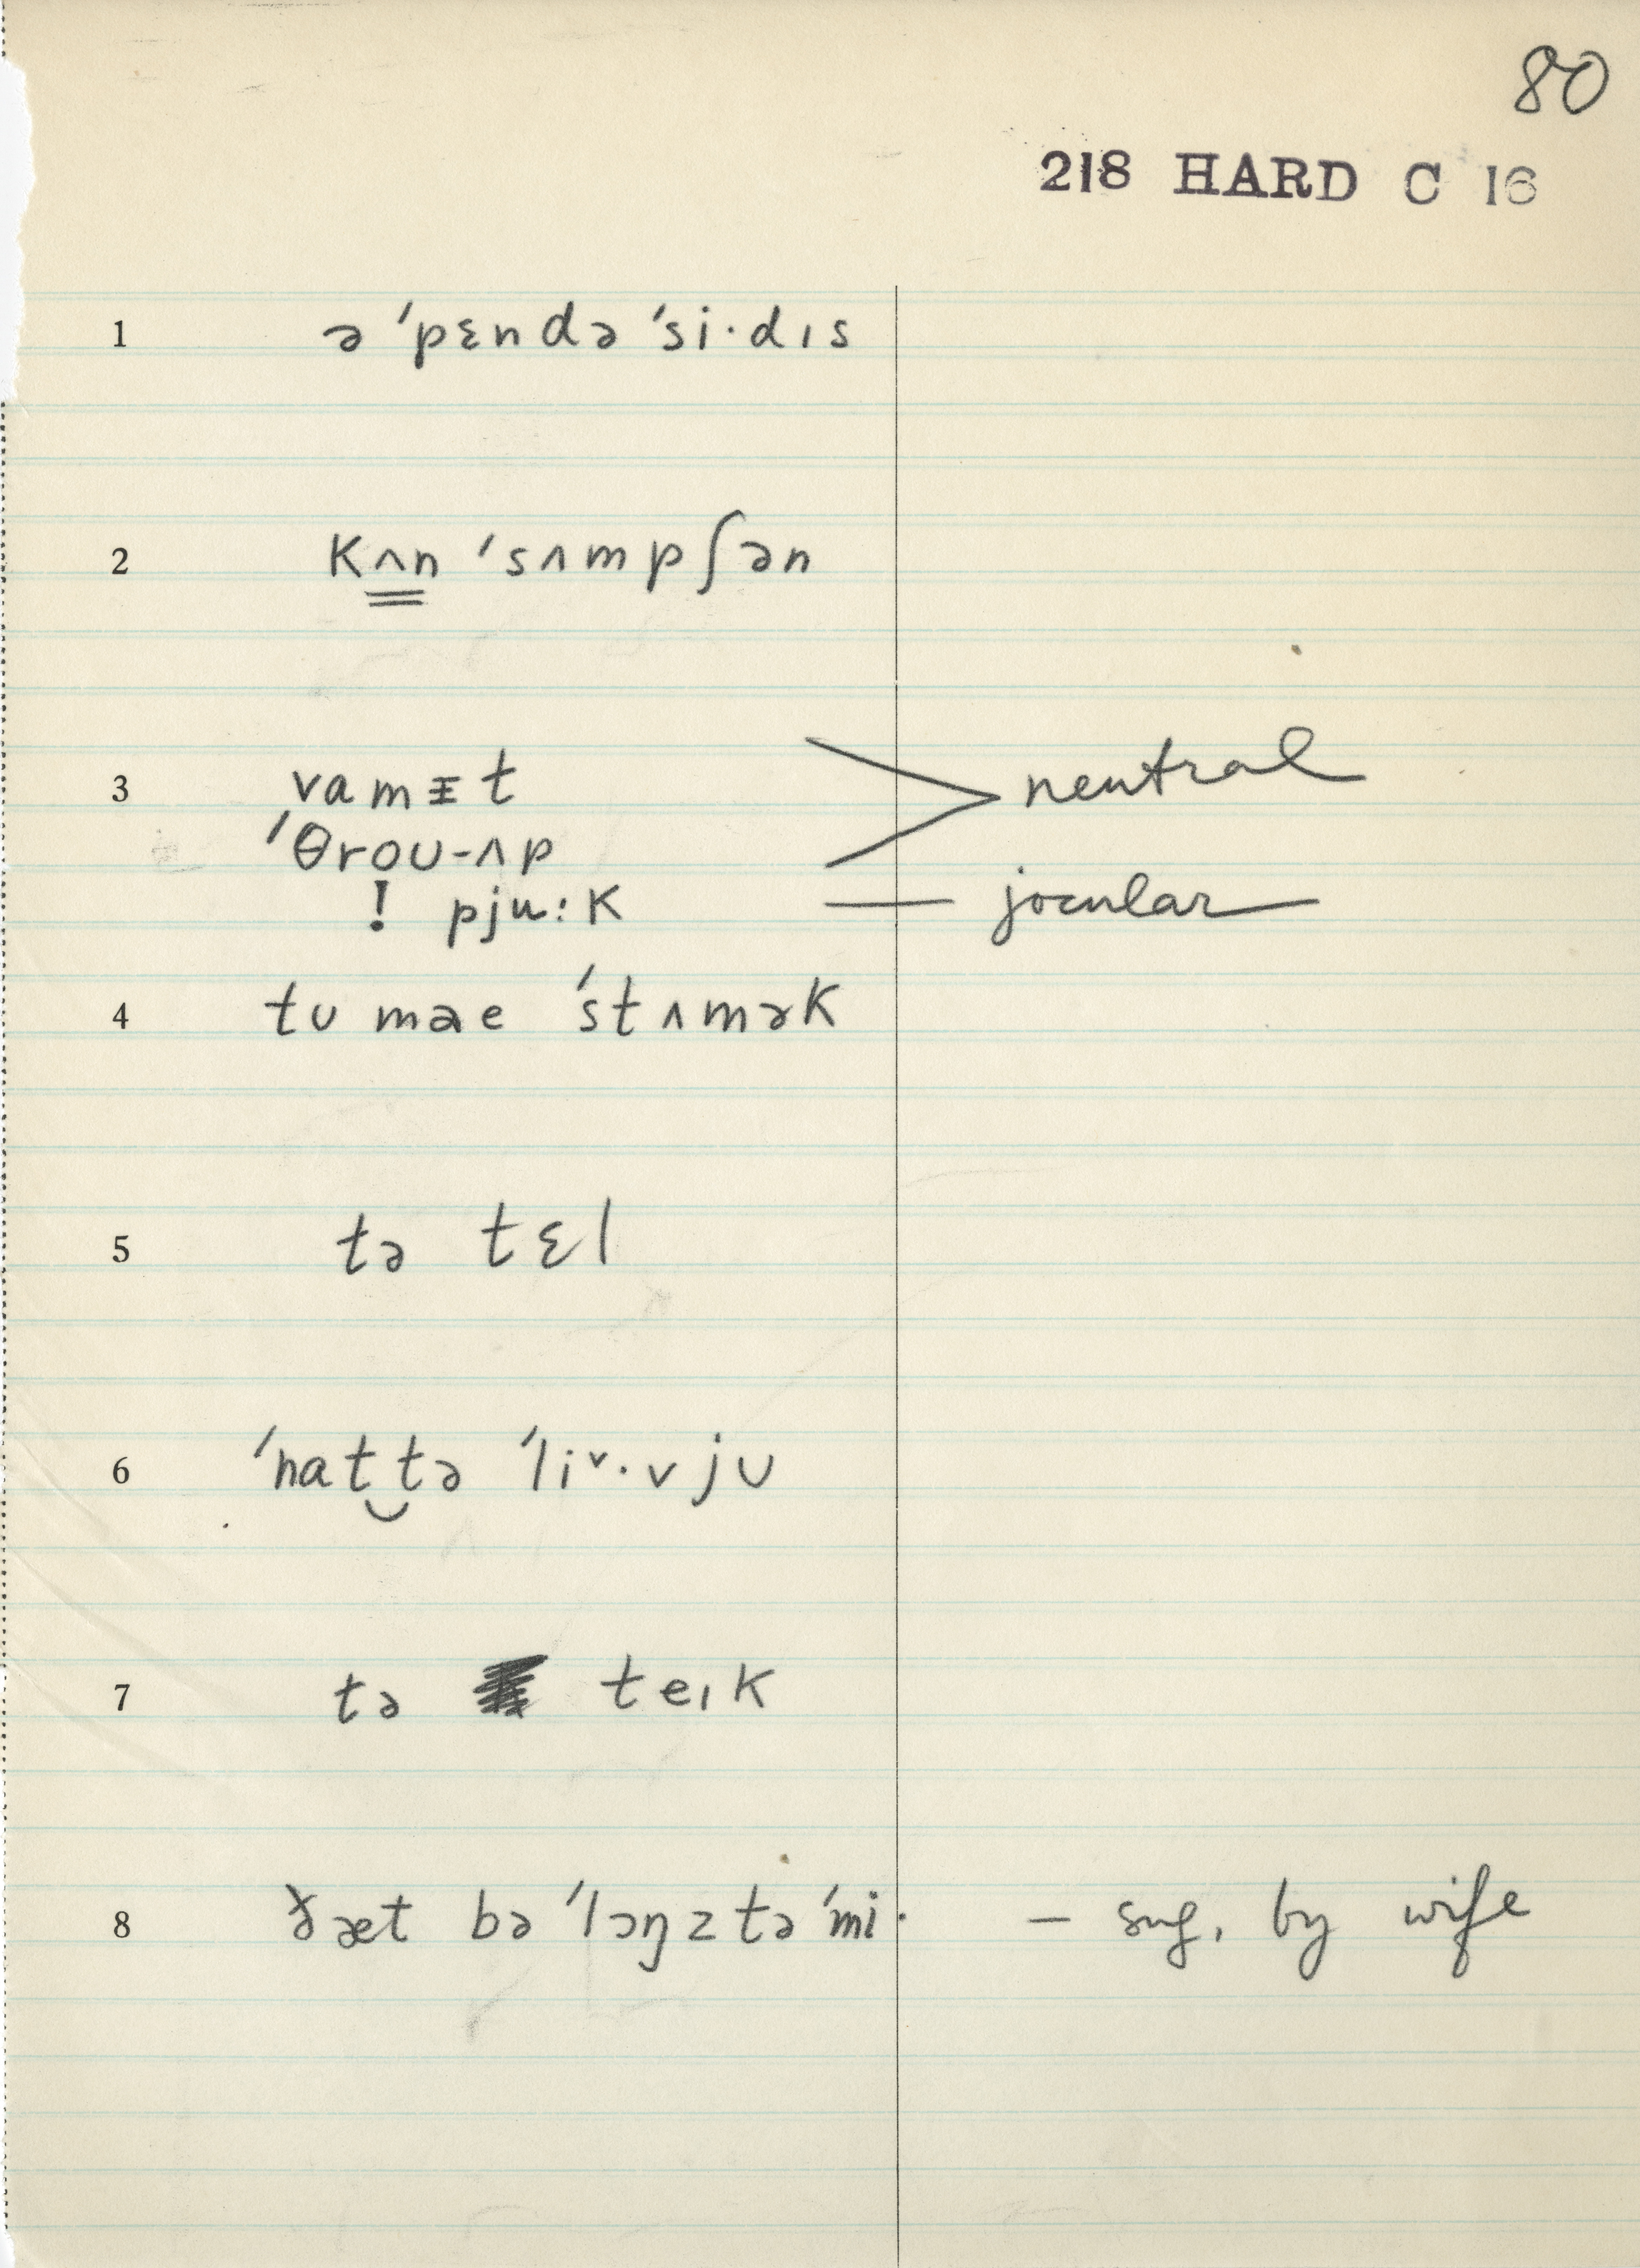 80
218 HARD C 16
1 ə ˈpɛndə ˈsi·dıs
2 kʌn ˈsʌmpʃən
3 vamɪt
ˈθrou-ʌp
neutral
! pju:k — jocular
4 tʊ mae ˈstʌmək
5 tə tɛl
6 ˈnat‿tə ˈliᵛ·vjʊ
7 tə teık
8 ðæt bə ˈlɔŋz tə ˈmi· — sug. by wife